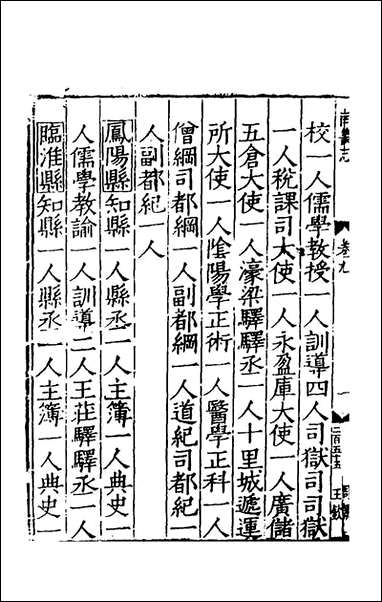 校一人儒學教授一人訓導四人司獄司司獄
一人稅課司大使一人永盈庫大使一人廣儲
五倉大使一人濠梁驛驛丞一人十里城遞運
所大使一人陰陽學正術一人醫學正科一人
僧綱司都綱一人副都綱一人道紀司都紀一
人副都紀一人
鳳陽縣知縣一人縣丞一人主簿一人典史一
人儒學教諭一人訓導二人王莊驛驛丞一人
臨淮縣知縣一人縣丞一人主簿一人典史一
卷九